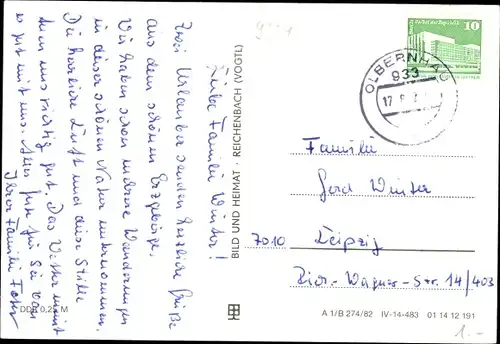 Liebe Familie Winter!
Zwei Urlauber senden herzliche Grüße
aus dem schönen Erzgebirge.
Wir haben schon mehrere Wanderungen
in dieser schönen Natur unternommen.
Die herrliche Luft und diese Stille
tun uns richtig gut. Das Wetter meint
es gut mit uns. Alles Gute für Sie von
Ihrer Familie
DDR 0,25 M
BILD UND HEIMAT · REICHENBACH (VOGTL)
10
OLBERNHAU
933
17.
Familie
Gerd Winter
7010 Leipzig
Rich.-Wagner-Str. 14/403
A 1/B 274/82 IV-14-483 01 14 12 191
1.-